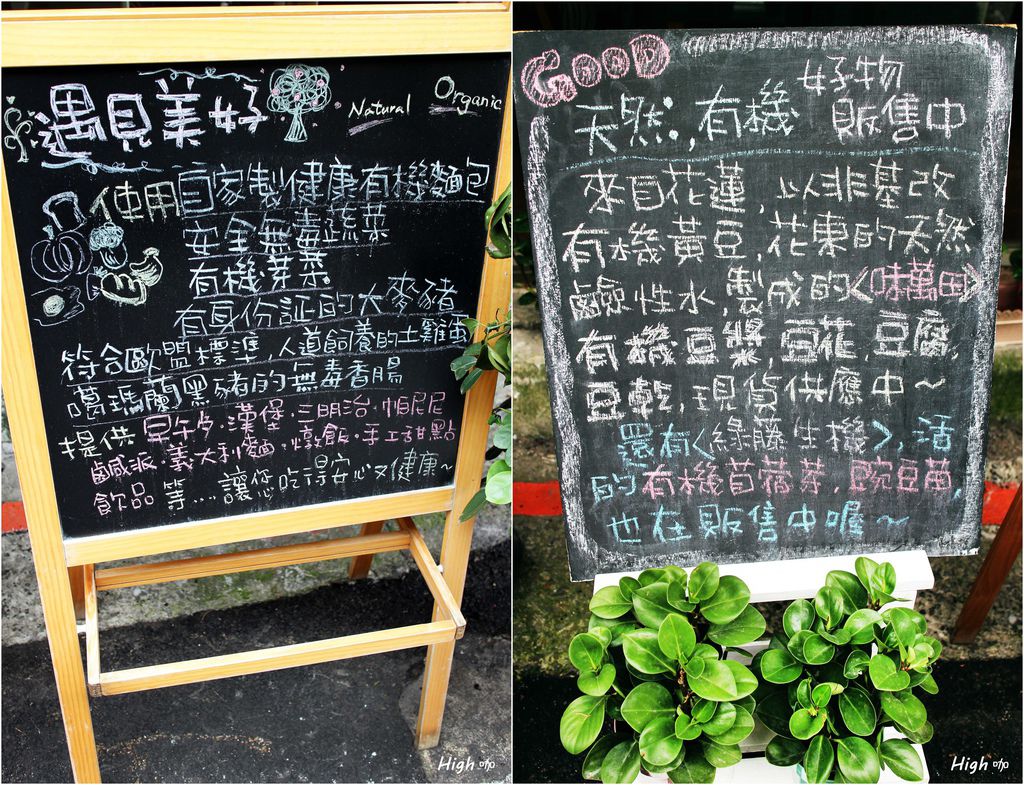 遇見美好
Natural
Organic
使用自家製健康有機麵包
安全無毒蔬菜
有機芽菜
有身份証的大麥豬
符合歐盟標準,人道飼養的土雞蛋
噶瑪蘭黑豬的無毒香腸
提供早午夕·漢堡·三明治·帕尼尼
鹹派·義大利麵·燉飯·手工甜點
飲品 等....讓您吃得安心又健康~
High 咖
GOOD
天然,有機
好物
販售中
來自花蓮,以非基改
有機黃豆,花東的天然
鹼性水,製成的<味萬田>
有機豆漿,豆花,豆腐,
豆乾,現貨供應中~
還有<綠藤生機>,活
的有機苜蓿芽,豌豆苗,
也在販售中喔~
High 咖